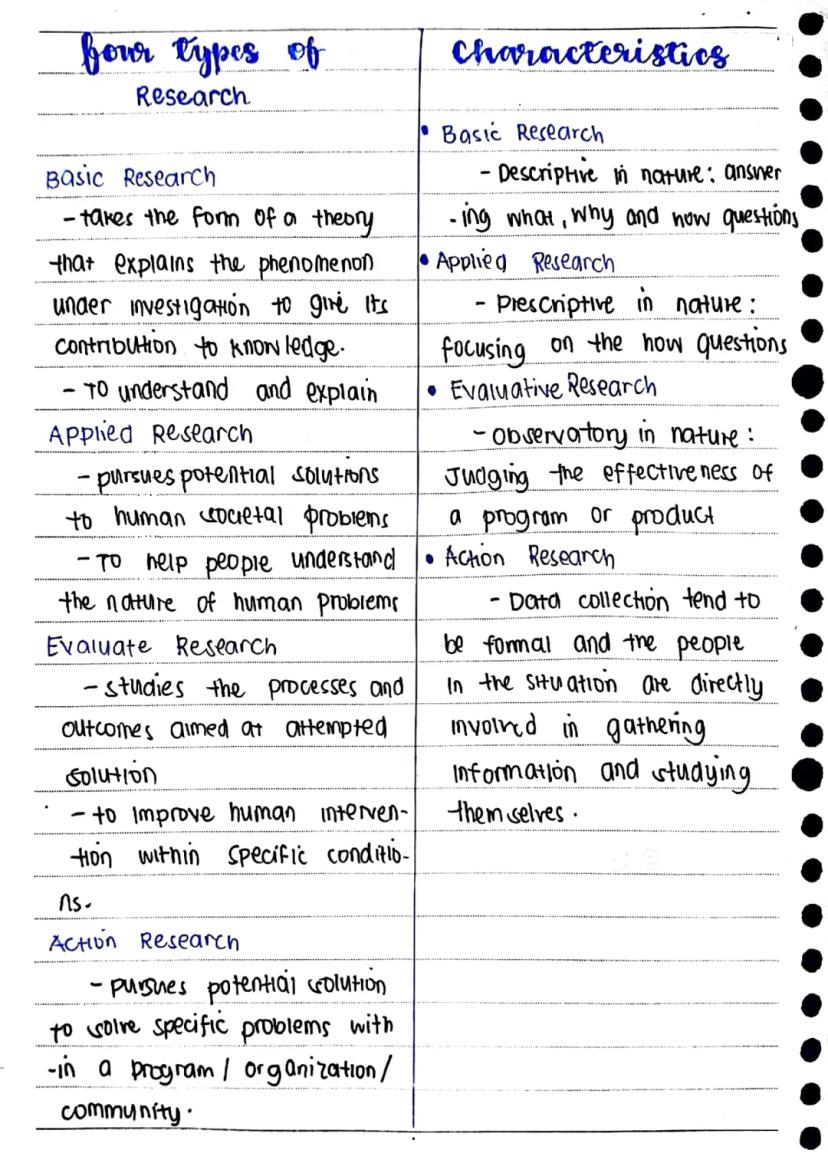 four types of
Research
Basic Research
- takes the form of a theory
that explains the phenomenon
under investigation to give its
contribution to knowledge.
- To understand and explain
Applied Research
- pursues potential solutions
to human societal problems
- To help people understand
the nature of human problems
Evaluate Research
- studies the processes and
outcomes aimed at attempted
solution
- to improve human interven-
tion within specific conditio-
ns.
Action Research
- pursues potential solution
to solve specific problems with
-in a program / organization /
community.
Characteristics
• Basic Research
- Descriptive in nature: answer
-ing what, why and how questions
• Applied Research
- Prescriptive in nature:
focusing on the how questions
• Evaluative Research
- Observatory in nature:
Judging the effectiveness of
a program or product
• Action Research
- Data collection tend to
be formal and the people
in the situation are directly
involved in gathering
information and studying
themselves.